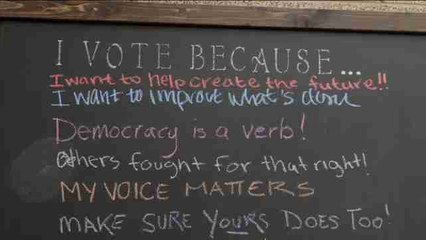 I VOTE BECAUSE...
I want to help create the future!!
I want to improve what's done
Democracy is a verb!
Others fought for that right!
MY VOICE MATTERS
MAKE SURE YOURS DOES TOO!